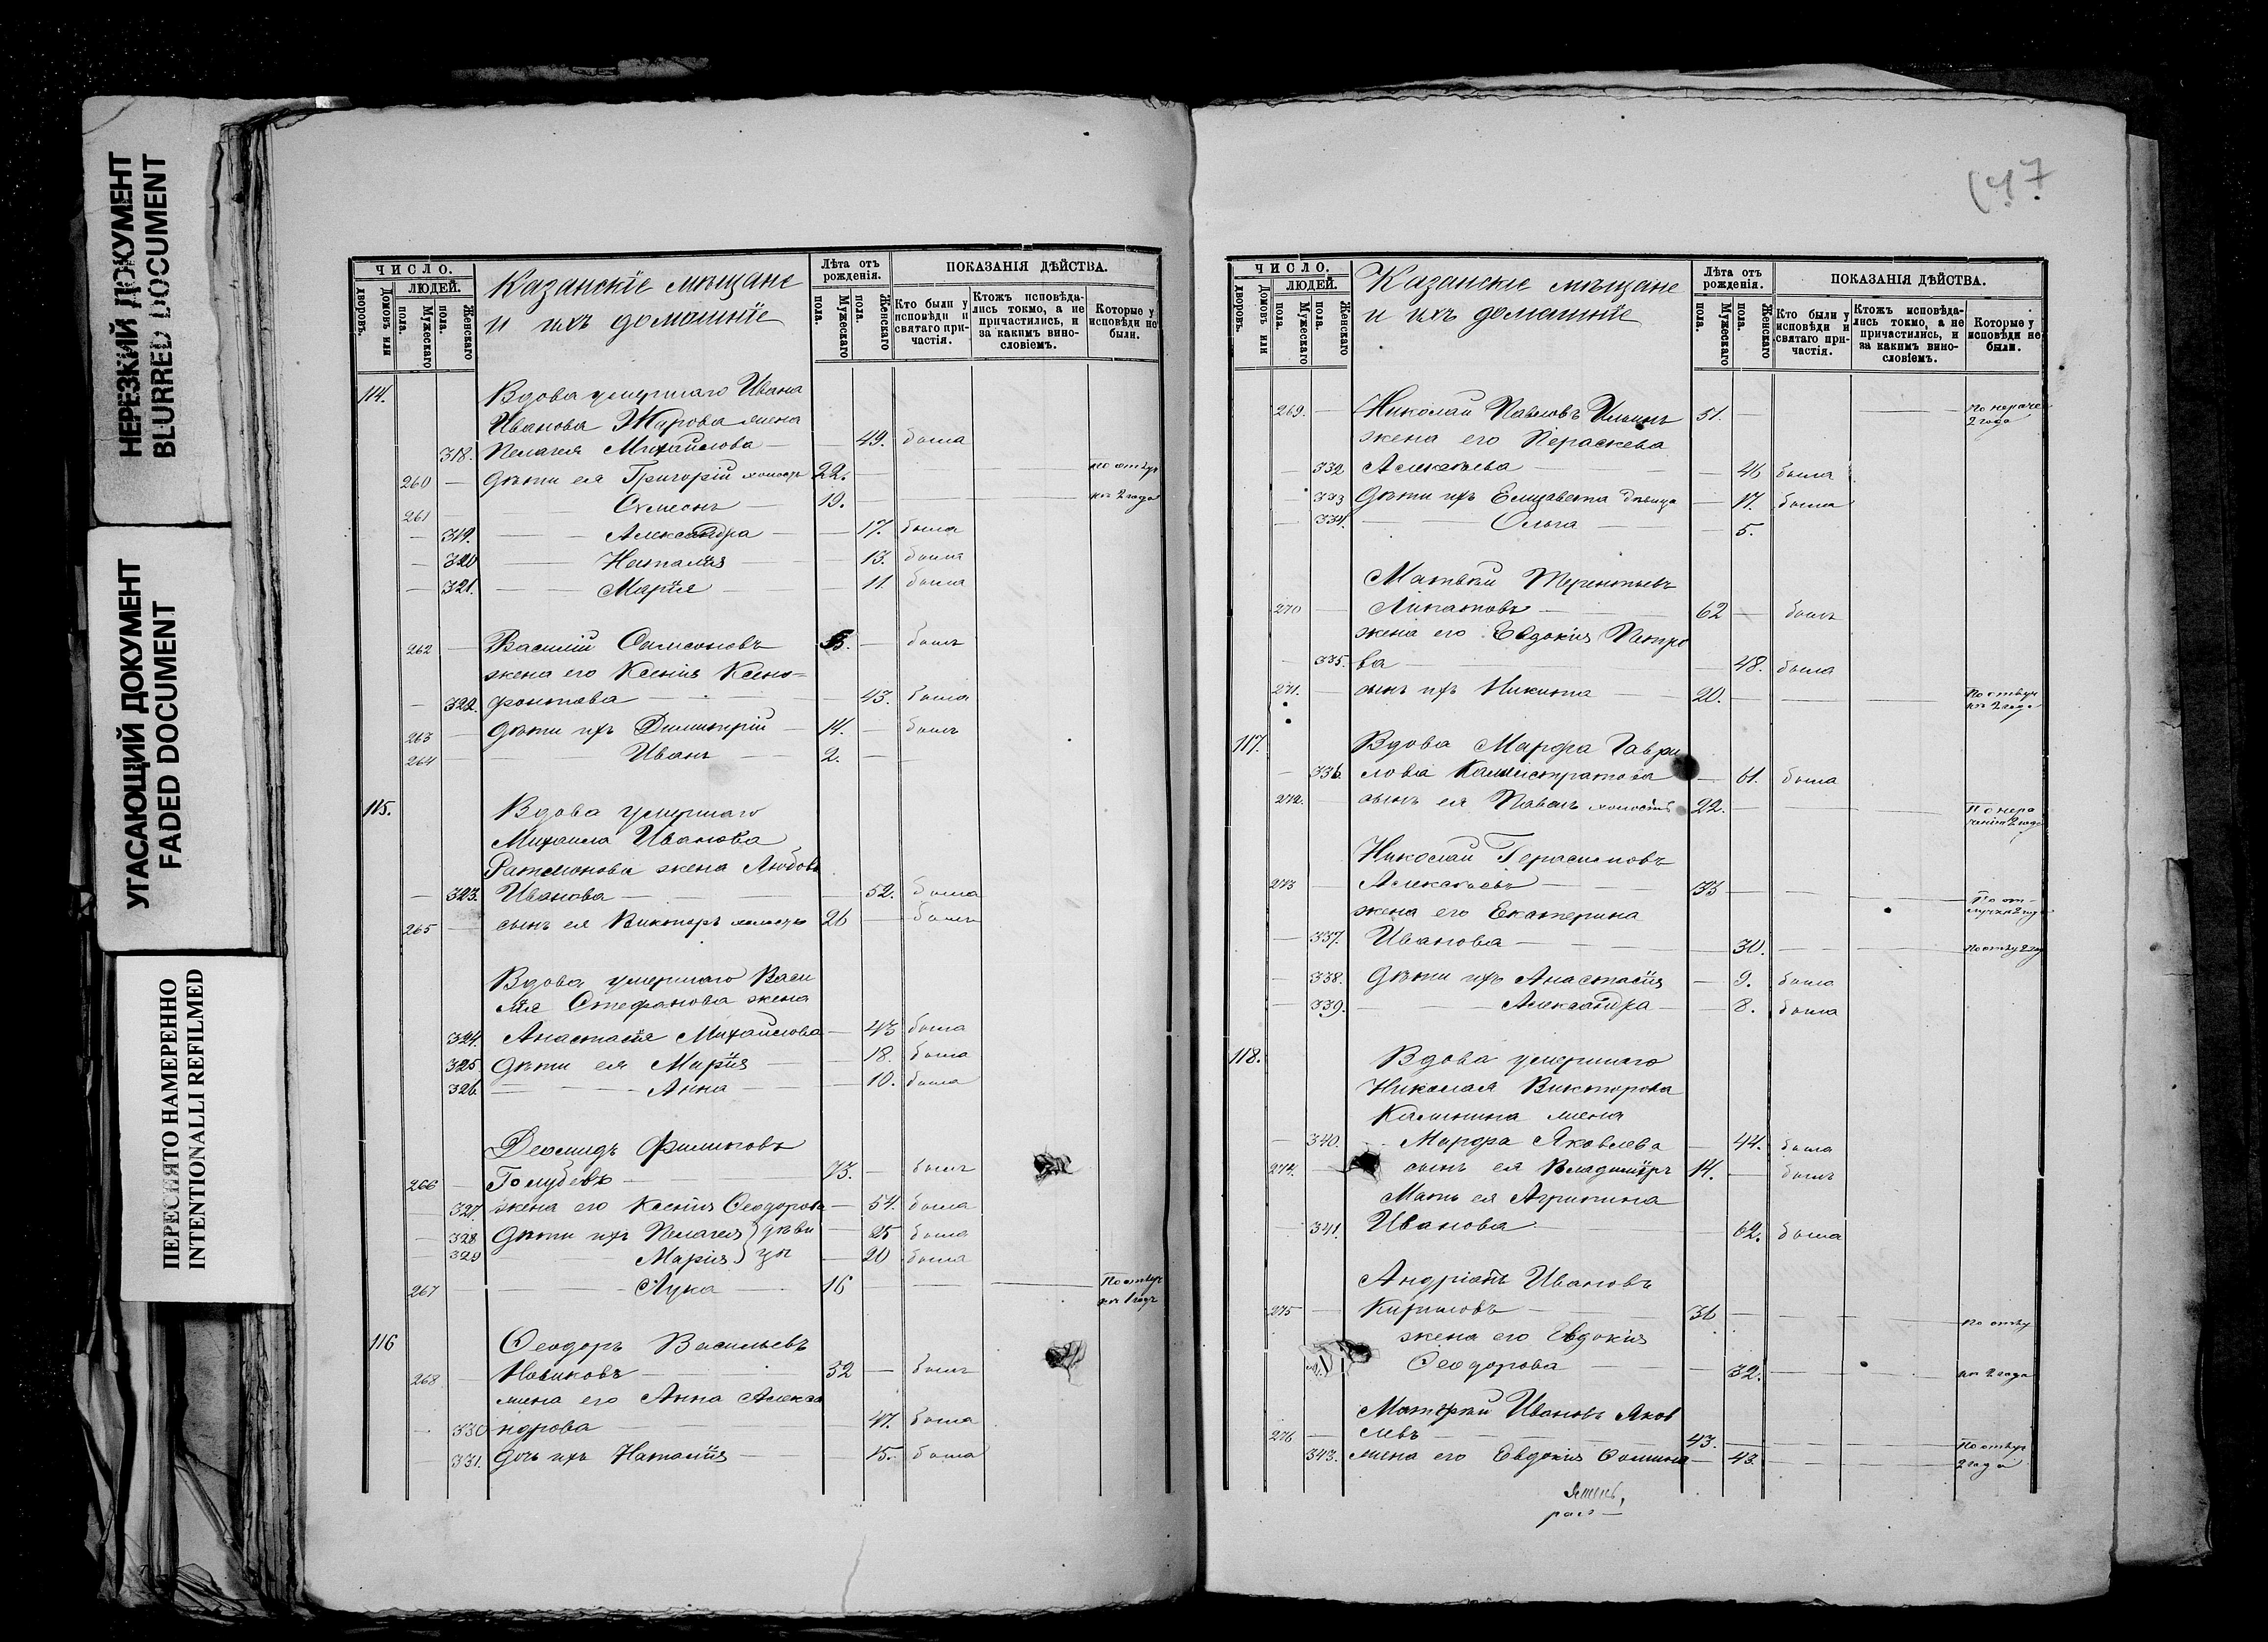 НЕРЕЗКИЙ ДОКУМЕНТ
BLURRED DOCUMENT
УГАСАЮЩИЙ ДОКУМЕНТ
FADED DOCUMENT
ПЕРЕСНЯТО НАМЕРЕННО
INTENTIONALLI REFILMED
ЧИСЛО.
ЛЮДЕЙ.
Домовъ или дворовъ.
Мужескаго пола.
Женскаго пола.
Казанскіе мѣщане
и ихъ домашніе
Лѣта отъ рожденія.
Мужескаго пола.
Женскаго пола.
ПОКАЗАНІЯ ДѢЙСТВА.
Кто были у исповѣди и святаго причастія.
Ктожъ исповѣдались токмо, а не причастились, и за какимъ винословіемъ.
Которые у исповѣди не были.
114. Вдова умершаго Ивана
Иванова Жарова жена
318. Пелагея Михайлова — 49. была
260 — дѣти ея Григорій холостъ 22. — по отлуч
261 Симеонъ — 19. — кѣ 2 года
319. Александра — 17. была
320 Наталія — 13. была
321. Марія — 11. была
262 — Василій Симоновъ — былъ
жена его Ксенія Ксено=
322. фонтова — 43. была
263 — дѣти ихъ Димитрій — 14. — былъ
264 Иванъ — 2. —
115. Вдова умершаго
Михаила Иванова
жена Любовь
323. Иванова — 52. была
265 — сынъ ея Викторъ холостъ 26 — былъ
Вдова умершаго Васи
лія Стефанова жена
324. Анастасія Михайлова — 43 была
325. дѣти ея Марія — 18. была
326. Анна — 10. была
Деомидъ Филиповъ
266 — Голубевъ — 73. — былъ
327. жена его Ксенія Ѳеодорова — 54. была
328 дѣти ихъ Пелагея } дѣви — 25 была
329 Марія } цы — 20 была
267 Лука — 16 — По отлуч
кѣ 1 годъ
116 Ѳеодоръ Васильевъ
268 — Новиковъ — 52 — былъ
жена его Анна Алекса
330 ндрова — 47. была
331. дочь ихъ Наталія — 15. была
47
ЧИСЛО.
ЛЮДЕЙ.
Домовъ или дворовъ.
Мужескаго пола.
Женскаго пола.
Казанскіе мѣщане
и ихъ домашніе
Лѣта отъ рожденія.
Мужескаго пола.
Женскаго пола.
ПОКАЗАНІЯ ДѢЙСТВА.
Кто были у исповѣди и святаго причастія.
Ктожъ исповѣдались токмо, а не причастились, и за какимъ винословіемъ.
Которые у исповѣди не были.
269. — Николай Павловъ Ильинъ 51. — по нераче
2 года
жена его Параскева
332 Алексѣева — 46 была
333 дѣти ихъ Елизавета дѣвица — 17. была
334. Ольга — 5.
Матвѣй Терентьевъ
270 — Липатовъ — 62 — былъ
жена его Евдокія Петро
335. ва — 48. была
271. — сынъ ихъ Никита — 20. — По отлуч
кѣ 2 года
117. Вдова Марфа Гаври
336 лова Каллистратова — 61. была
272. — сынъ ея Павелъ холостъ 22. — По нера
ченію 2 года
Николай Герасимовъ
273 — Алексѣевъ — 33 — По от-
лучкѣ 2 года
жена его Екатерина
337. Иванова — 30. — По отлу 2 год
338. дѣти ихъ Анастасія — 9. была
339. Александра — 8. была
118. Вдова умершаго
Николая Викторова
Калинина жена
340. Марфа Яковлева — 44. была
274. — сынъ ея Владиміръ 14. — былъ
Мать ея Агрипина
341. Иванова — 62. была
Андріанъ Ивановъ
275 — Кириловъ — 36 — по отлу
жена его Евдокія
Ѳеодорова — 32. — кѣ 2 года
Матвѣй Ивановъ Яков
276 — левъ — 43. — По отлуч
343. жена его Евдокія Ѳомина — 43 — 2 года